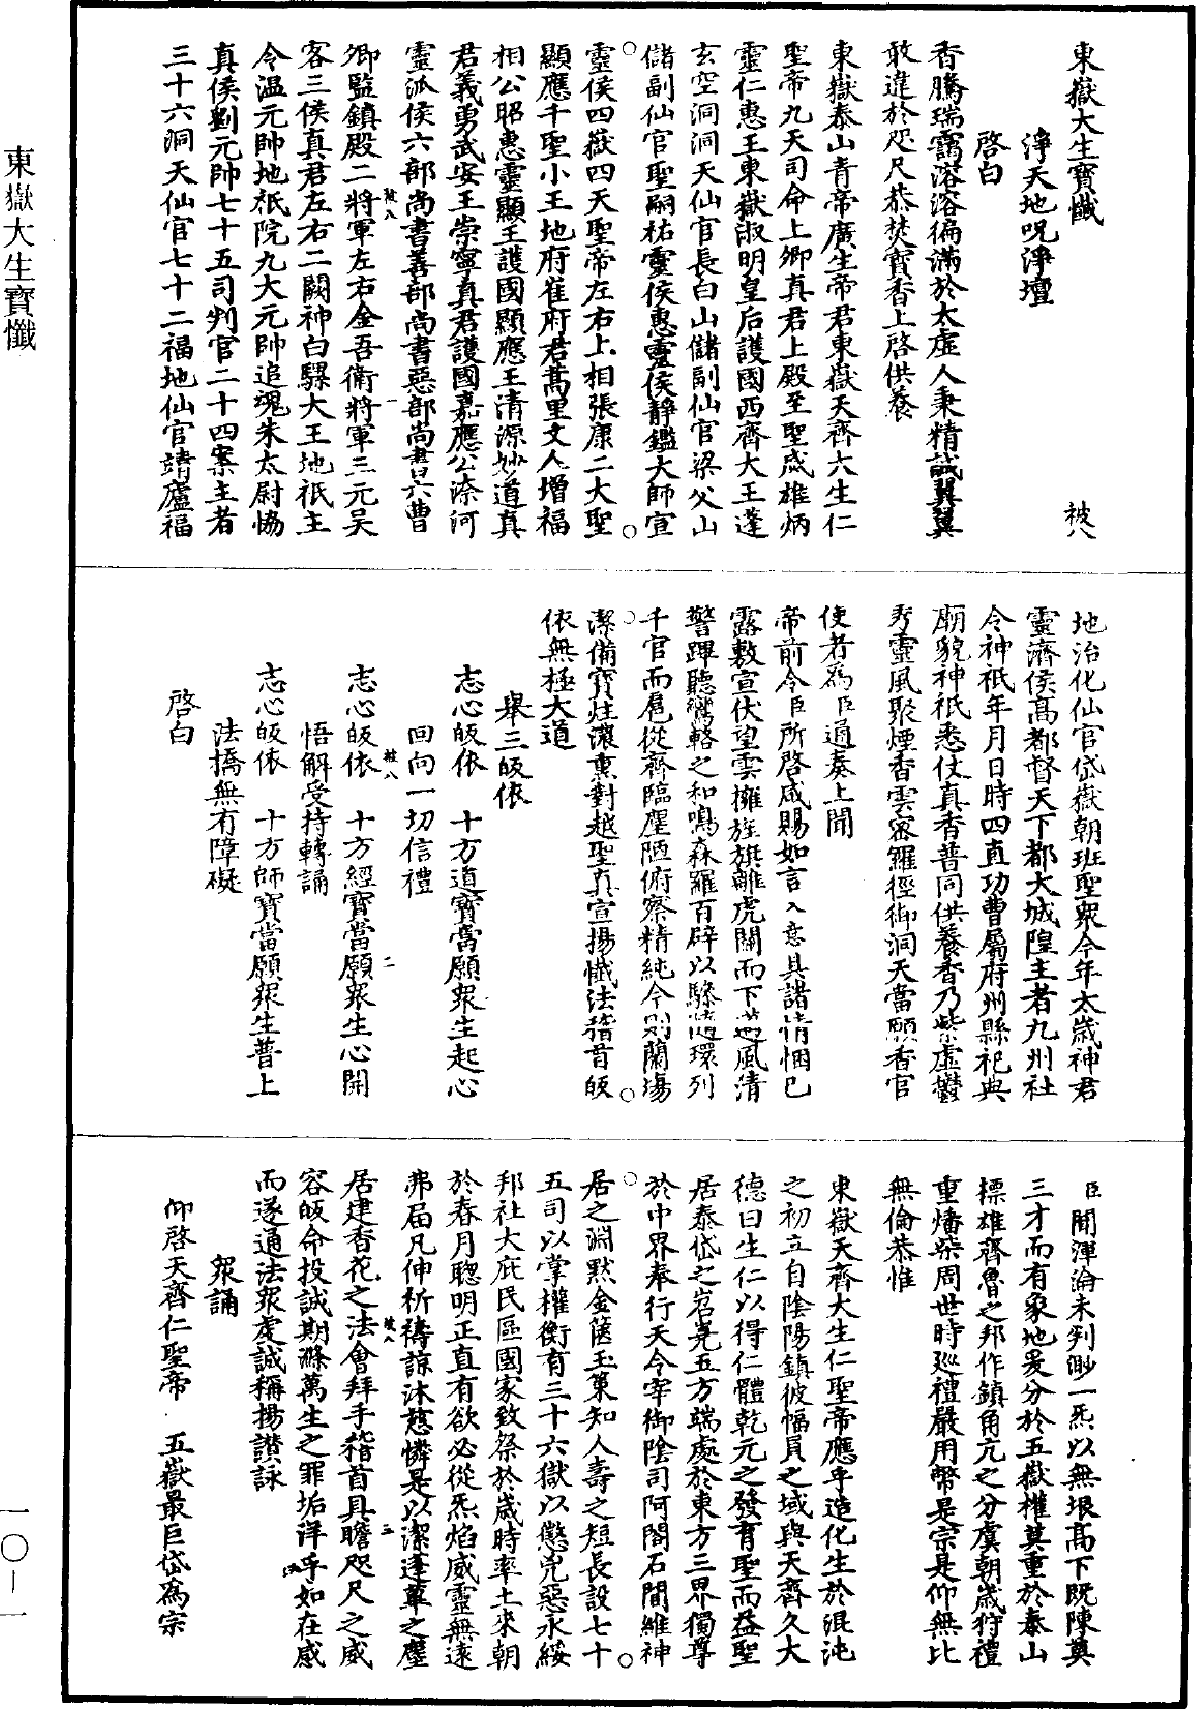 東嶽大生寶懺　被八
淨天地呪淨壇
啓白
香騰瑞靄溶溶徧滿於太虛人秉精誠翼翼
敢進於咫尺恭焚寶香上啓供養
東嶽泰山青帝廣生帝君東嶽天齊大生仁
聖帝九天司命上卿真君上殿至聖威雄炳
靈仁惠王東嶽淑明皇后護國西齊大王蓬
玄空洞洞天仙官長白山儲副仙官梁父山
儲副仙官聖嗣祐靈侯惠靈侯靜鑑大師宣
靈侯四嶽四天聖帝左右上相張康二大聖
顯應千聖小王地府崔府君蒿里丈人增福
相公昭惠靈顯王護國顯應王清源妙道真
君義勇武安王崇寧真君護國嘉應公渿河
靈派侯六部尚書善部尚書惡部尚書六曹
被八　一
卿監鎮殿二將軍左右金吾衛將軍三元吳
客三侯真君左右二闕神白騾大王地祇主
令温元帥地祇院九大元帥追魂朱太尉恊
真侯劉元帥七十五司判官二十四案主者
三十六洞天仙官七十二福地仙官靖廬福
地治化仙官岱嶽朝班聖衆今年太歲神君
靈濟侯高都督天下都大城隍主者九州社
令神祇年月日時四直功曹屬府州縣祀典
廟貌神祇悉仗真香普同供養香乃紫虛鬱
秀靈風聚煙香雲密羅徑御洞天當願香官
使者為臣通奏上聞
帝前令臣所啓咸賜如言入意具諸情悃已
露敷宣伏望雲擁旌旗離虎關而下邁風清
警蹕聽鸞輅之和鳴森羅百辟以驂隨環列
千官而扈從齊臨塵陋俯察精純今則蘭湯
潔備寶炷濃熏對越聖真宣揚懺法稽首皈
依無極大道
舉三皈依
志心皈依　十方道寶當願衆生起心
回向一切信禮
被八　二
志心皈依　十方經寶當願衆生心開
悟解受持轉誦
志心皈依　十方師寶當願衆生普上
法橋無有障礙
啓白
臣聞渾淪未判渺一炁以無垠高下既陳奠
三才而有象地爰分於五嶽權莫重於泰山
標雄齊魯之邦作鎮角亢之分虞朝歲狩禮
重燔柴周世時巡禮嚴用幣是宗是仰無比
無倫恭惟
東嶽天齊大生仁聖帝應乎造化生於混沌
之初立自陰陽鎮彼幅員之域與天齊久大
德曰生仁以得仁體乾元之發育聖而益聖
居泰岱之岧嶤五方端處於東方三界獨尊
於中界奉行天令宰御陰司阿閣石閭維神
居之淵默金篋玉策知人壽之短長設七十
五司以掌權衡有三十六獄以懲兇惡永綏
邦社大庇民區國家致祭於歲時率土來朝
於春月聰明正直有欲必從炁焰威靈無遠
弗屆凡伸祈禱諒沐慈憐是以潔蓬蓽之塵
被八　三
居建香花之法會拜手稽首具瞻咫尺之威
容皈命投誠期滌萬生之罪垢洋乎如在感
而遂通法衆虔誠稱揚讃詠
衆誦
仰啓天齊仁聖帝　五嶽最巨岱為宗
東嶽大生寶懺
一〇－一